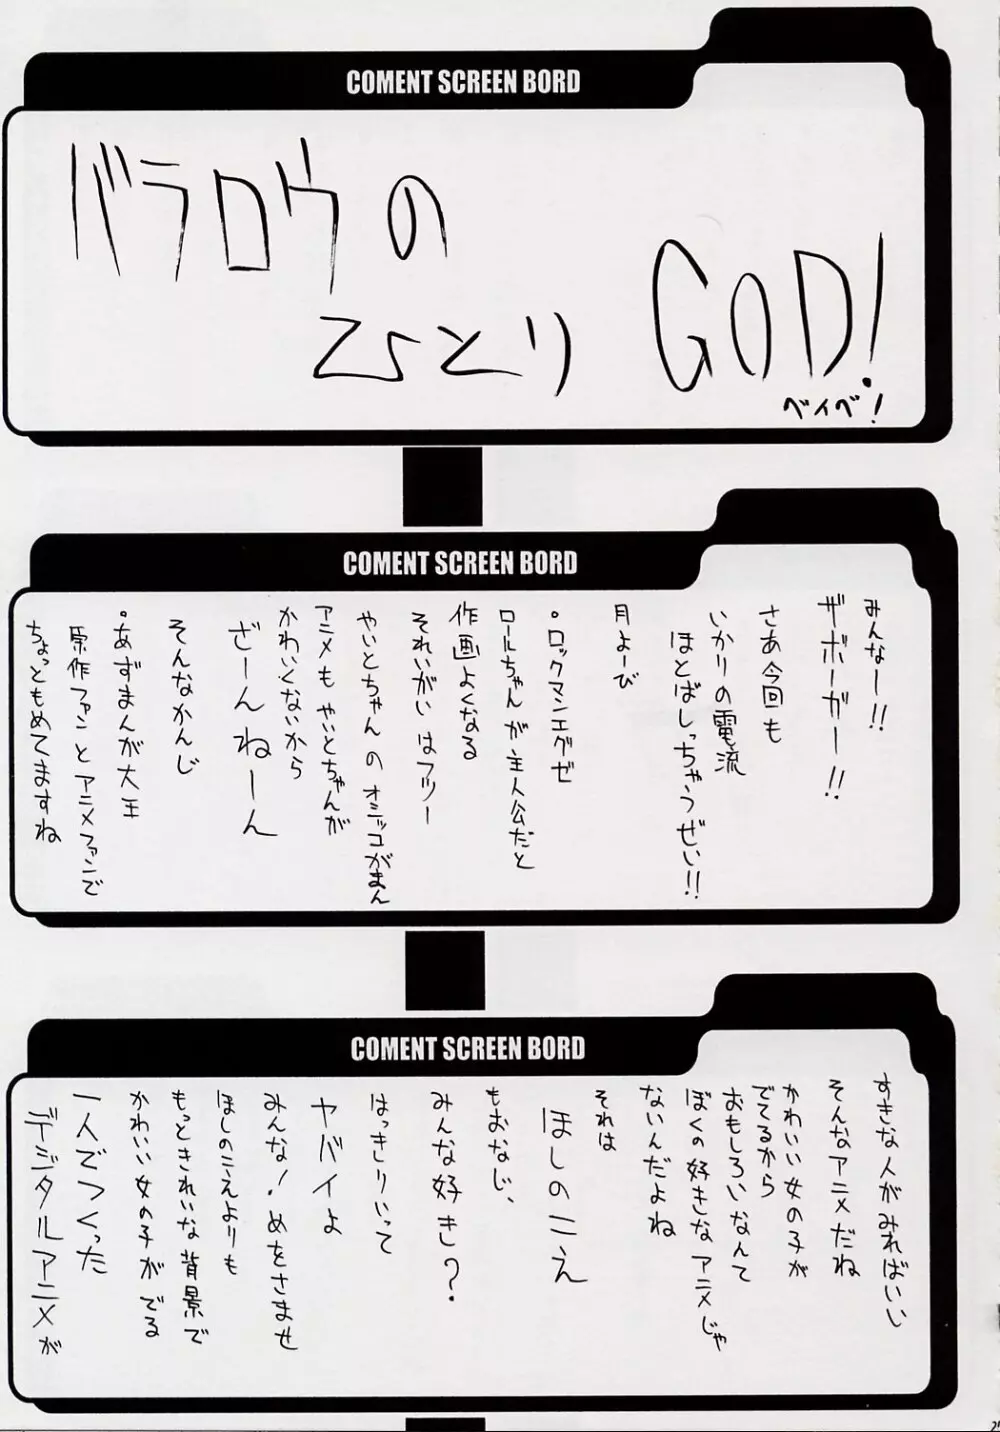 COMENT SCREEN BORD
バラロウの
ひとり
GOD!
ベイベ!
COMENT SCREEN BORD
みんなー!!
ザボーガー!!
さあ今回も
いかりの電流
ほとばしっちゃうぜい!!
月よーび
・ロックマンエグゼ
ロールちゃんが主人公だと
作画よくなる
それいがいはフツー
やいとちゃんのオニッコがまん
アニメもやいとちゃんが
かわいくないから
ざーんねーん
そんなかんじ
・あずまんが大王
原作ファンとアニメファンで
ちょっともめてますね
COMENT SCREEN BORD
すきな人がみればいい
そんなアニメだね
かわいい女の子が
でてるから
おもしろいなんて
ぼくの好きなアニメじゃ
ないんだよね
それは
ほしのこえ
もおなじ、
みんな好き?
はっきりいって
ヤバイよ
みんな!めをさませ
ほしのこえよりも
もっときれいな背景で
かわいい女の子がでる
一人でつくった
デジタルアニメが